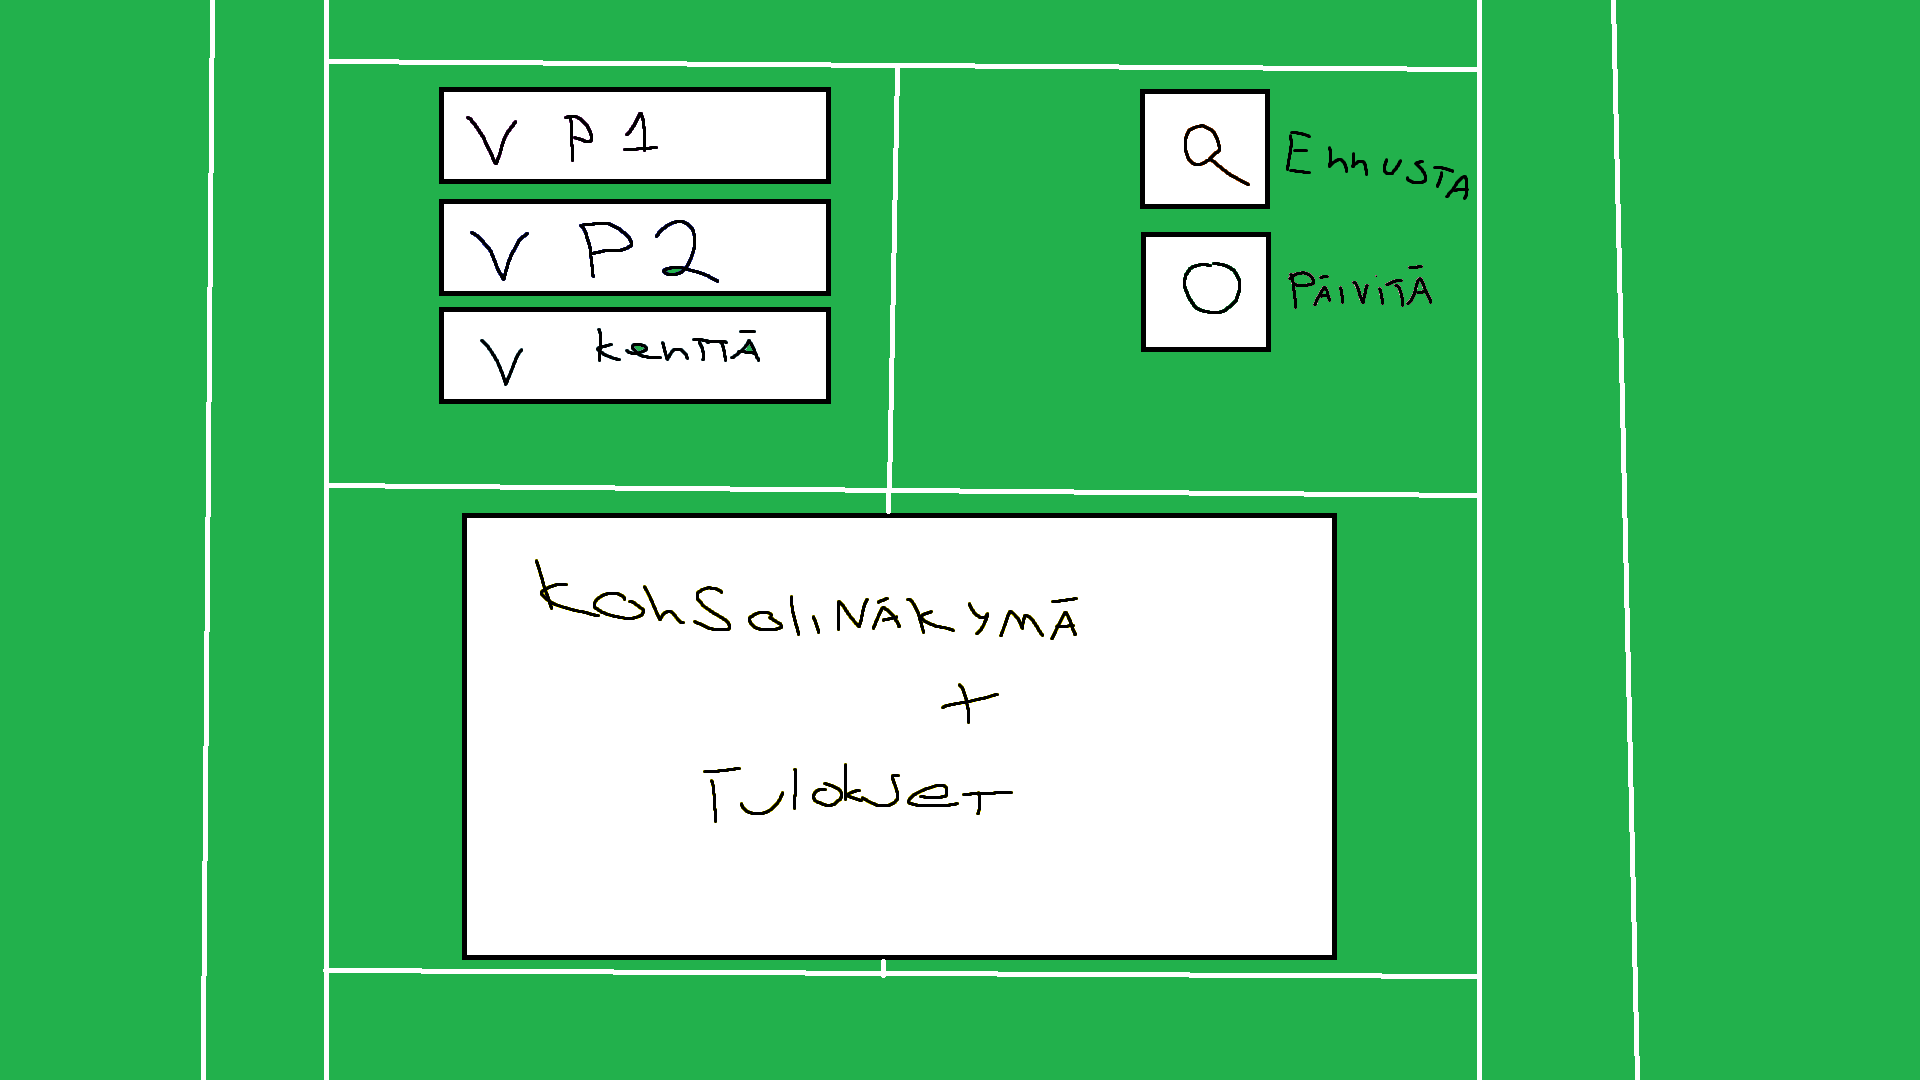 V P1
V P2
V kenttä
Ennusta
Päivitä
Konsolinäkymä
+
Tulokset